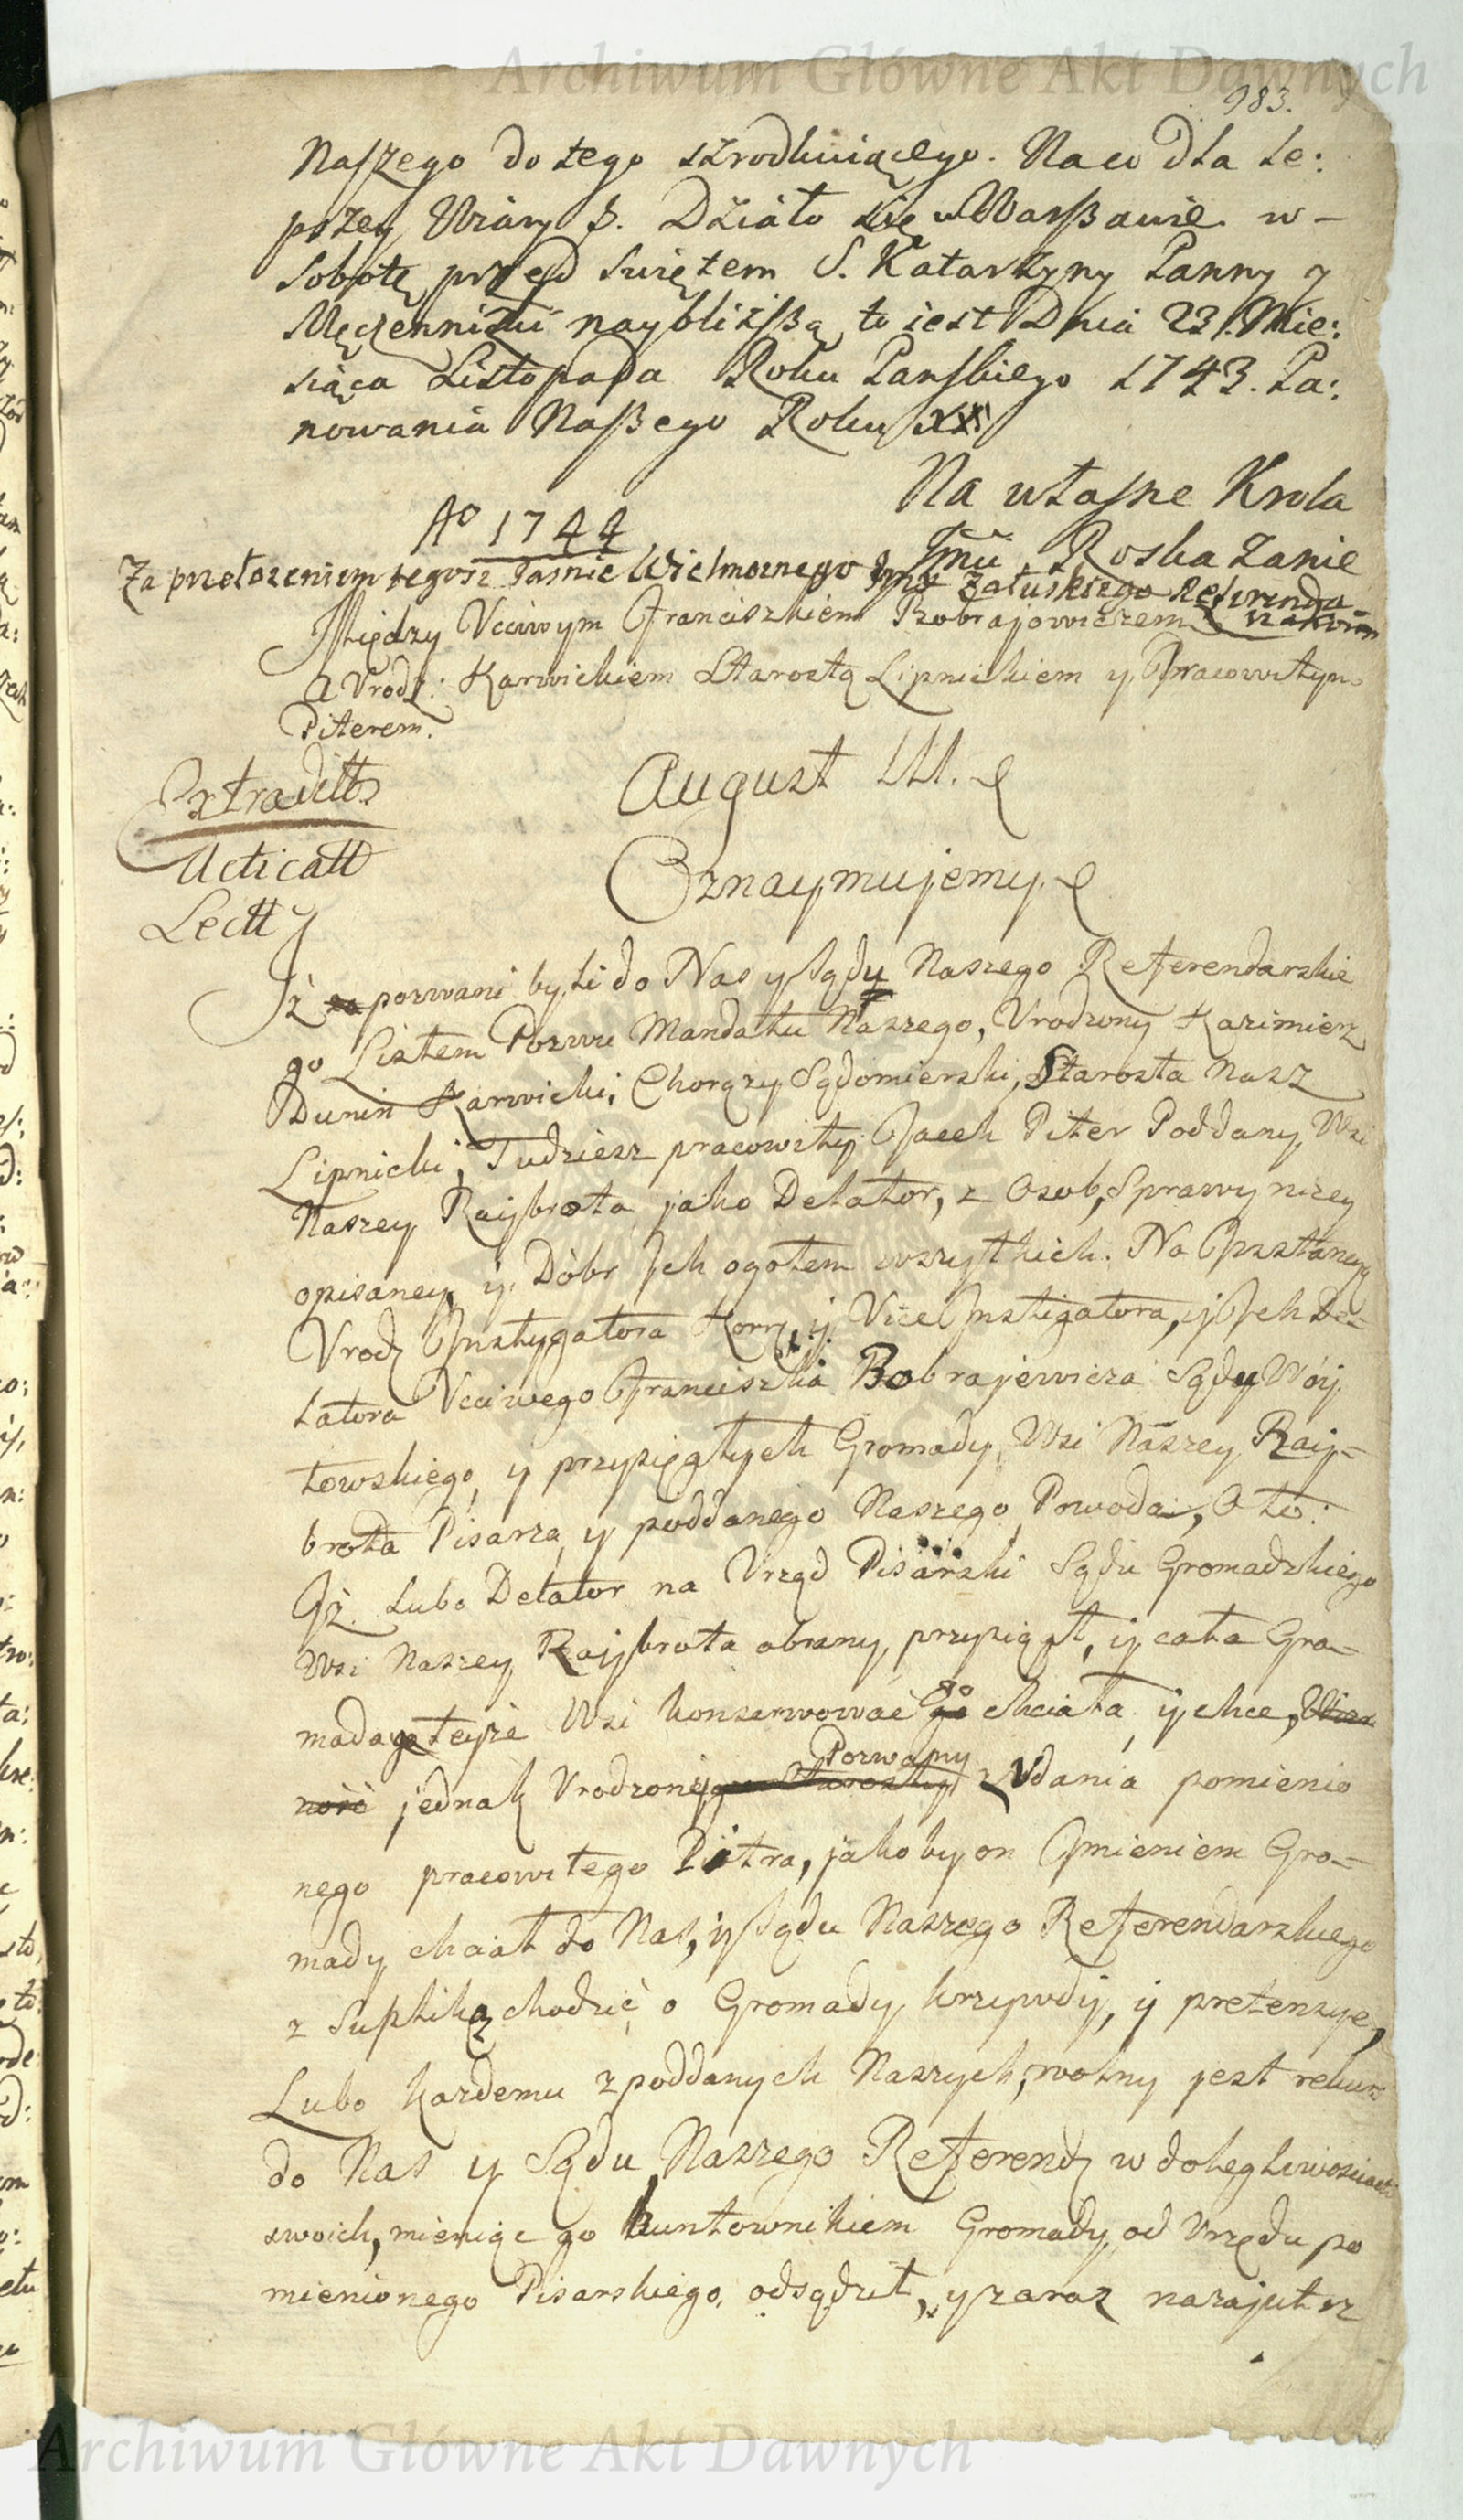 Archiwum Główne Akt Dawnych
983.
Naszego do tego szrodkuiącego. Na co dla le:
pszey Wiary &. Działo się w Warszawie w
Sobotę przed Swiętem S. Katarzyny Panny y
Męczenniczki naybliższą to iest Dnia 23. Mie:
siąca Listopada Roku Panskiego 1743. Pa:
nowania Naszego Roku XI
Na własne Krola
Jmci Roskazanie
Ao 1744
Za przełozeniem tegosz Jasnie Wielmoznego Jmci Załuskiego Referenda
Między Vcciwym Franciszkiem Bobrajowiczem
a Vrodz: Karwickiem Starostą Lipnickiem y Pracowitym
Piterem.
Extraditt
Acticatt
Lectt
August III. &
Oznaymujemy. &
Iż pozwani byli do Nas y Sądu Naszego Referendarskie
go Listem Pozwu Mandatu Naszego, Vrodzony Kazimierz
Dunin Karwicki, Chorązy Sądomierski, Starosta Nasz
Lipnicki, Tudziesz pracowity Jacek Piter Poddany Wsi
Naszey Rajbrota jako Delator, z Osob, Sprawy nizey
opisaney y Dóbr Jch ogołem wszytkich. Na Jnstancyą
Vrodz Jnstygatora Korr, y Vice Jnstigatora, y Jch De=
latora Vcciwego Franciszka Bobrajewicza Sądu Wóy
towskiego, y przysięgłych Gromady, Wsi Naszey Raij=
brota Pisarza y poddanego Naszego Powoda, O to:
Jż Lubo Delator na Vrząd Pisarski Sądu Gromadzkiego
Wsi Naszey Raijbrota obrany, przysiągł, ij cała Gro=
mada teyze Wsi konserwować go chciała ij chce,
jednak Vrodzony Pozwany z Vdania pomienio
nego pracowitego Pitra, jakoby on Jmieniem Gro=
mady chciał do Nas, ij Sądu Naszego Referendarskiego
z Supliką chodzić o Gromady krzywdy, ij pretensye,
Lubo kazdemu z poddanych Naszych, wolny jest rekurs
do Nas y Sądu Naszego Referendz w dolegliwosciach
swoich, mieniąc go buntownikiem Gromady, od Vrzędu po
mienionego Pisarskiego, odsądził, y zaraz nazajutrz
Archiwum Główne Akt Dawnych